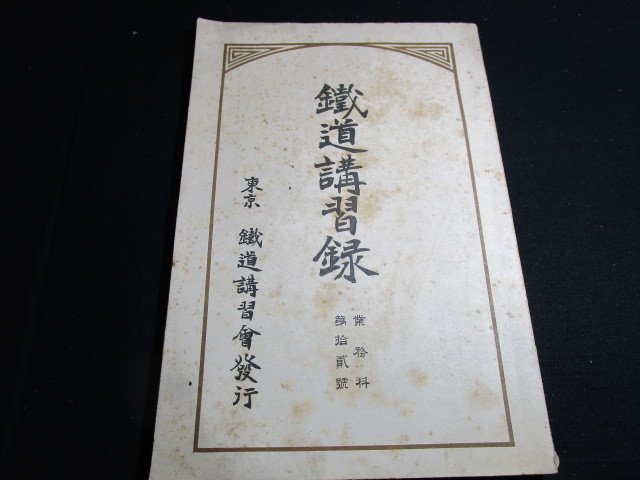 鐵道講習録
業務科
第拾貳號
東京 鐵道講習會發行